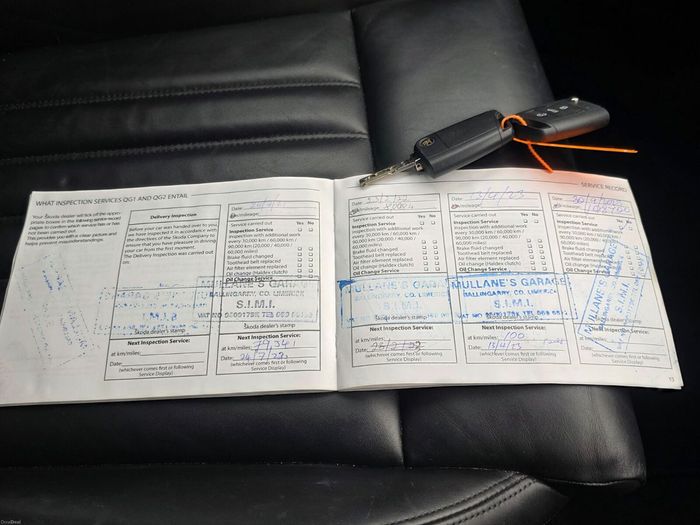 WHAT INSPECTION SERVICES QG1 AND QG2 ENTAIL
Your Škoda dealer will tick off the appro-
priate boxes in the following service record
pages to confirm which service has or has
not been carried out.
This provides you with a clear picture and
helps prevent misunderstandings.
Delivery Inspection
Before your car was handed over to you,
we have inspected it in accordance with
the directives of the Škoda Company to
ensure that you have pleasure in driving
your car from the first moment.
The Delivery Inspection was carried out
on:
Škoda dealer's stamp
Next Inspection Service:
at km/miles:
Date:
(whichever comes first or following
Service Display)
Date:
km/mileage:
Service carried out
Yes No
Inspection Service
inspection with additional work
every 30,000 km / 60,000 km /
90,000 km (20,000 / 40,000 /
60,000 miles)
Brake fluid changed
Toothead belt replaced
Air filter element replaced
Oil change (Haldex clutch)
Oil Change Service
MULLANE'S GARAGE
BALLINGARRY, CO. LIMERICK
S.I.M.I.
Škoda dealer's stamp
Next Inspection Service:
at km/miles: 79,341
Date:
(whichever comes first or following
Service Display)
SERVICE RECORD
Date:
km/mileage:
Service carried out
Yes No
Inspection Service
inspection with additional work
every 30,000 km / 60,000 km /
90,000 km (20,000 / 40,000 /
60,000 miles)
Brake fluid changed
Toothead belt replaced
Air filter element replaced
Oil change (Haldex clutch)
Oil Change Service
MULLANE'S GARAGE
BALLINGARRY, CO. LIMERICK
S.I.M.I.
Škoda dealer's stamp
Next Inspection Service:
at km/miles:
Date:
(whichever comes first or following
Service Display)
Date: 13/4/23
km/mileage:
Service carried out
Yes No
Inspection Service
inspection with additional work
every 30,000 km / 60,000 km /
90,000 km (20,000 / 40,000 /
60,000 miles)
Brake fluid changed
Toothead belt replaced
Air filter element replaced
Oil change (Haldex clutch)
Oil Change Service
MULLANE'S GARAGE
BALLINGARRY, CO. LIMERICK
S.I.M.I.
Škoda dealer's stamp
Next Inspection Service:
at km/miles:
Date:
(whichever comes first or following
Service Display)
Date:
km/mileage:
Service carried out
Yes No
Inspection Service
inspection with additional work
every 30,000 km / 60,000 km /
90,000 km (20,000 / 40,000 /
60,000 miles)
Brake fluid changed
Toothead belt replaced
Air filter element replaced
Oil change (Haldex clutch)
Oil Change Service
MULLANE'S GARAGE
S.I.M.I.
Škoda dealer's stamp
Next Inspection Service:
at km/miles:
Date:
(whichever comes first or following
Service Display)
13
DoneDeal